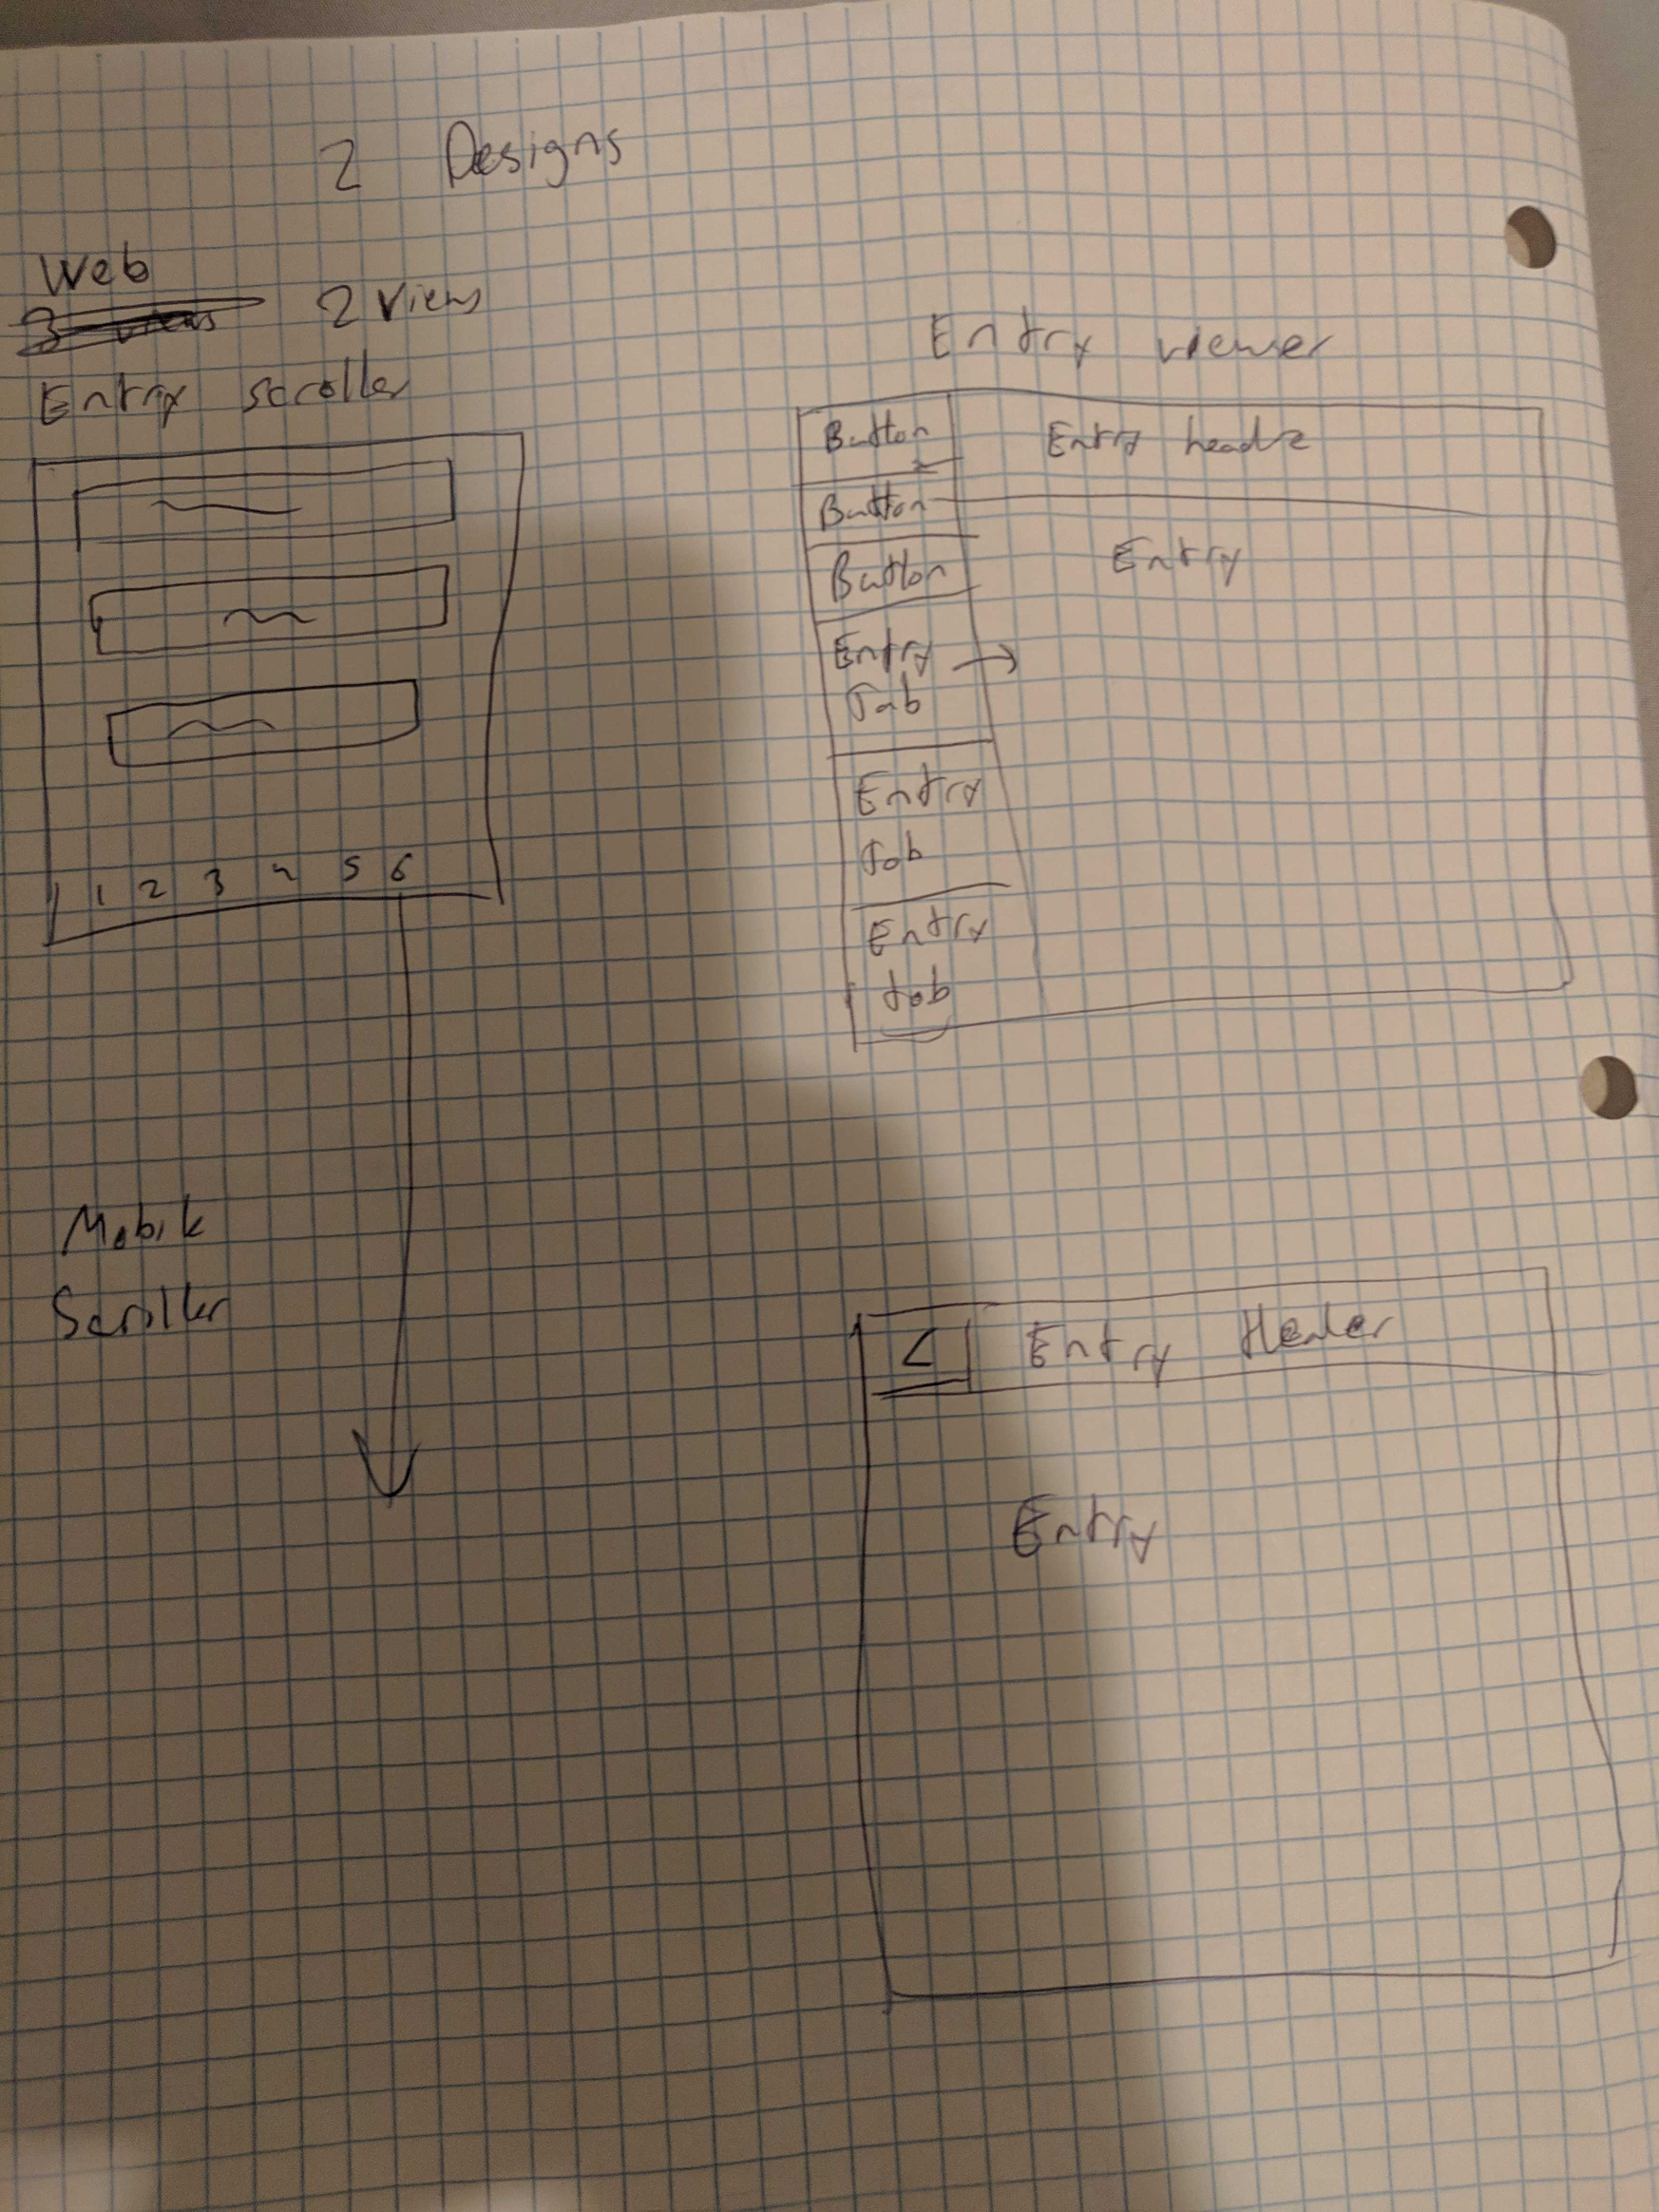 2 Designs
Web
3 views 2 Views
Entry scroller
1 2 3 4 5 6
Entry viewer
Button
Button
Button
Entry
Tab
Entry
Tab
Entry
tab
Entry header
Entry
Mobile
Scroller
< Entry Header
Entry